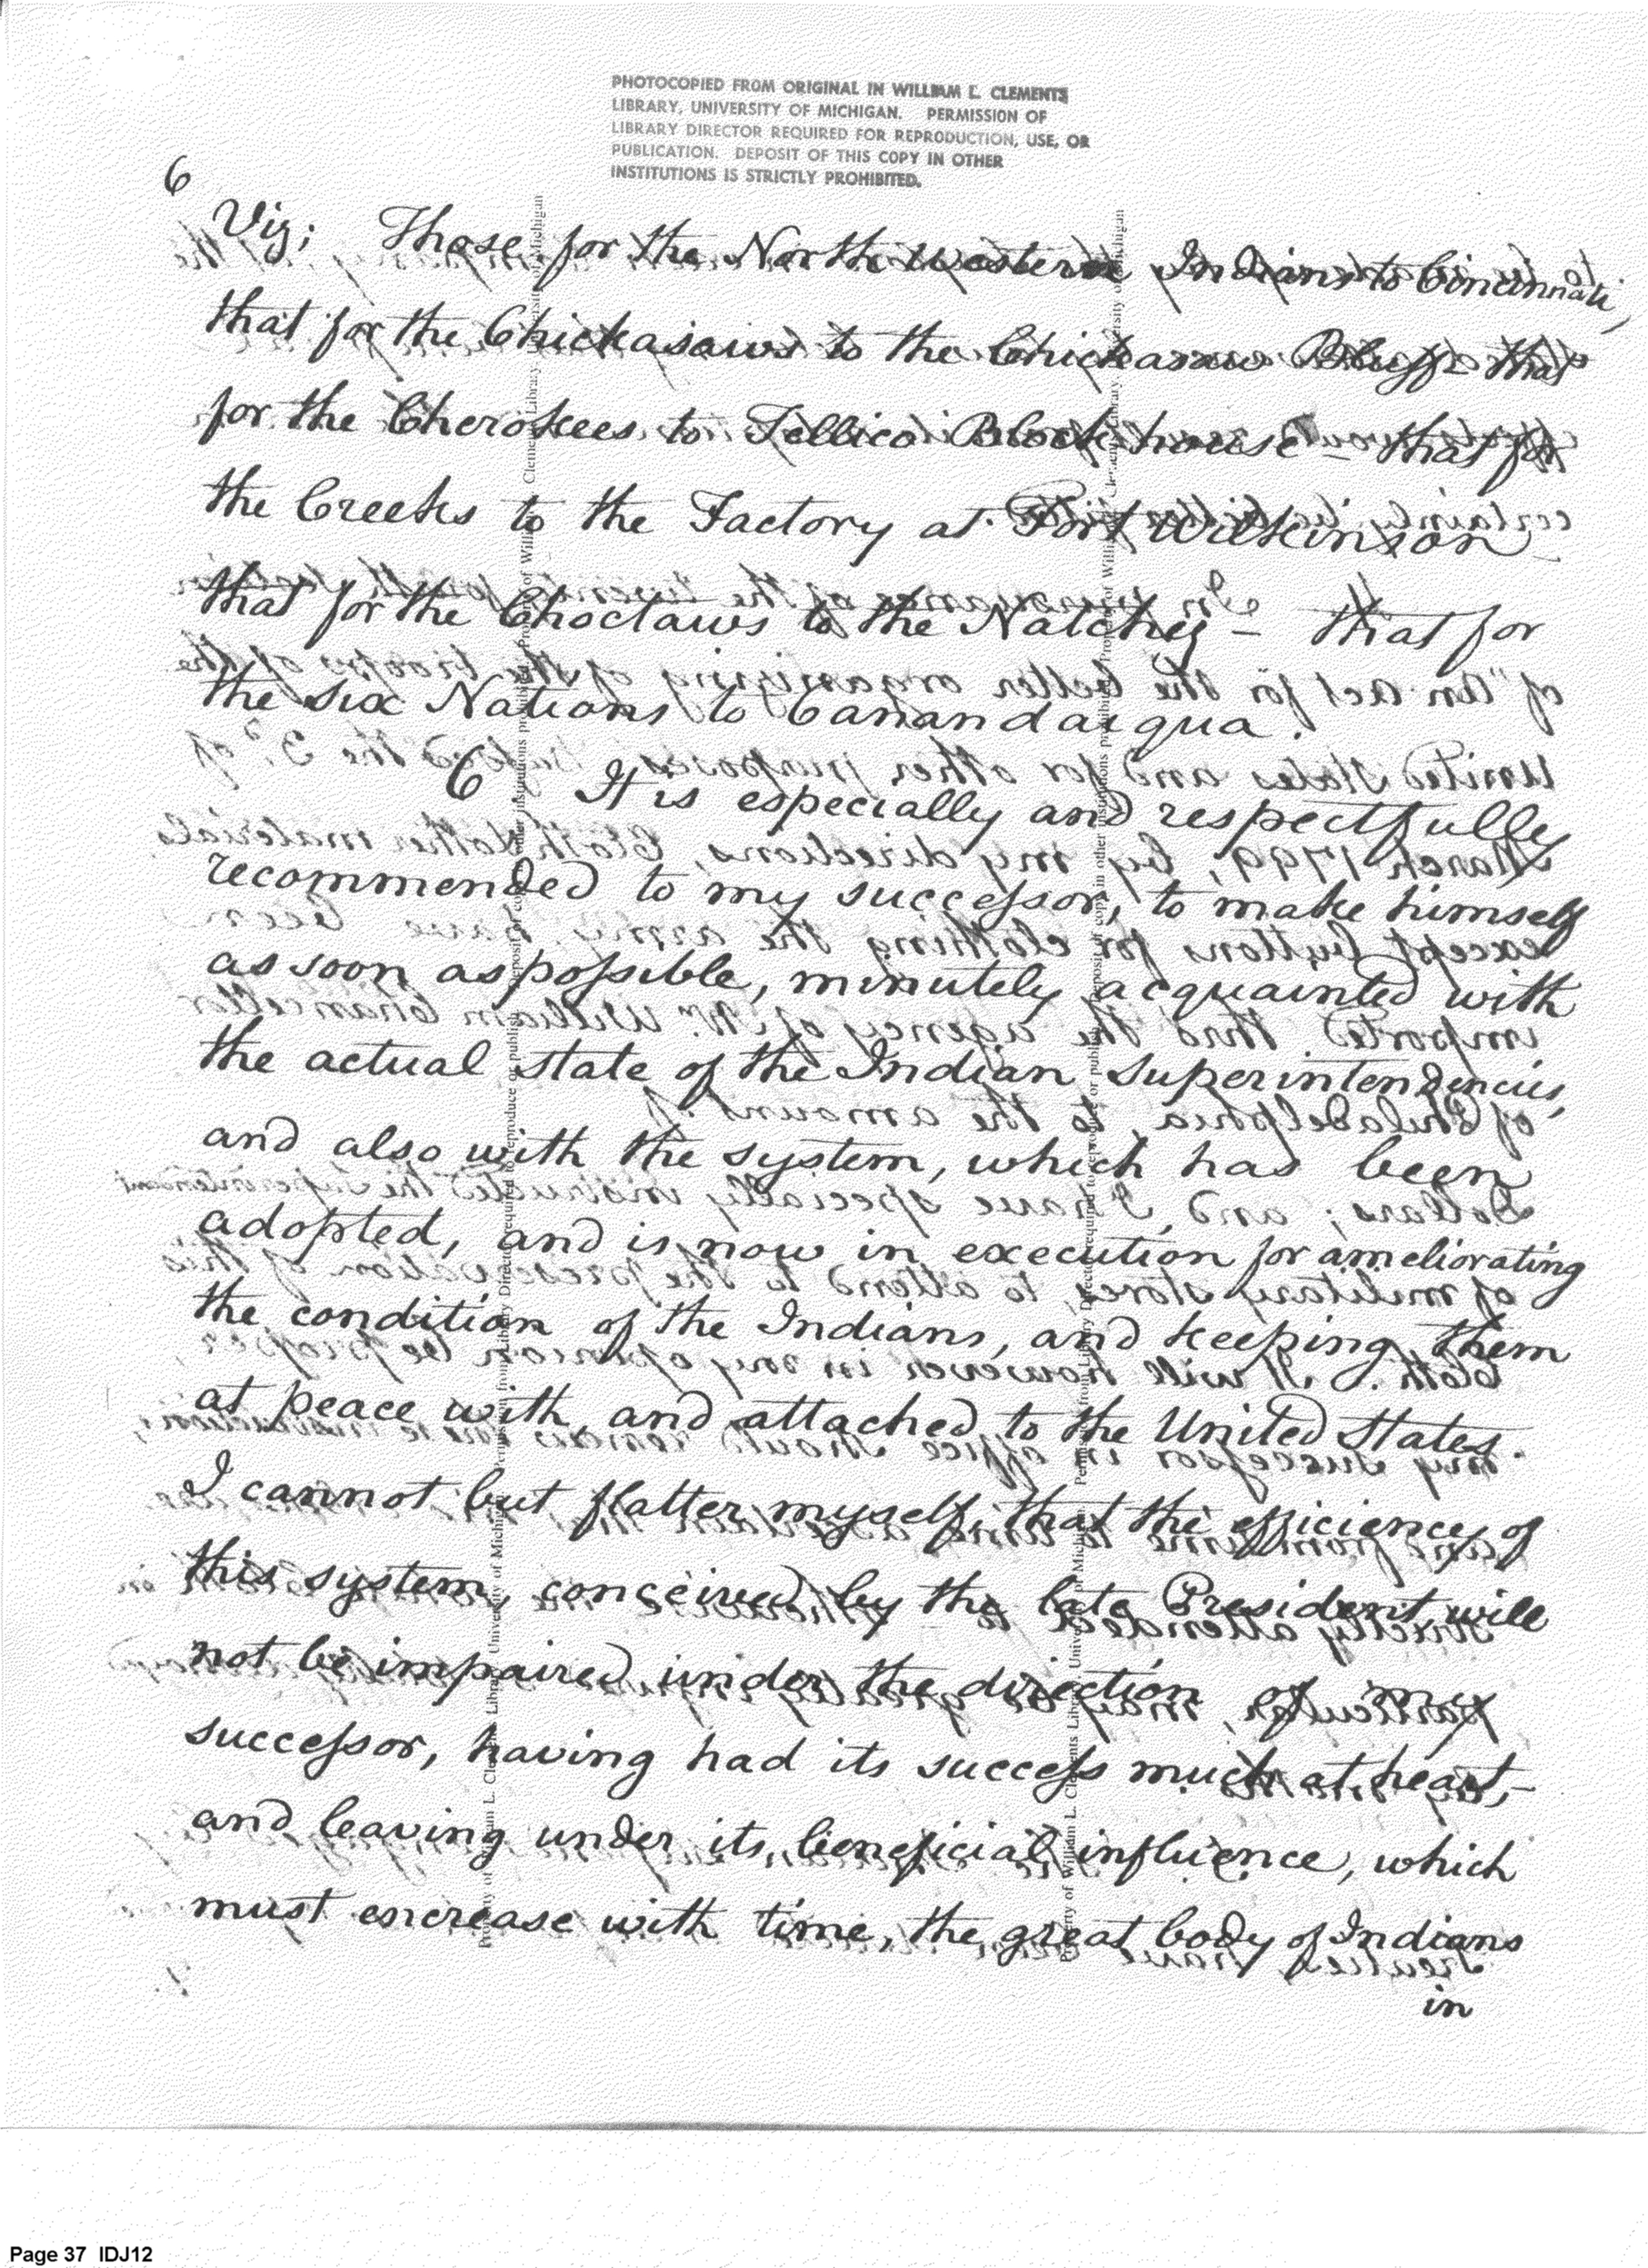 PHOTOCOPIED FROM ORIGINAL IN WILLIAM L. CLEMENTS
LIBRARY, UNIVERSITY OF MICHIGAN. PERMISSION OF
LIBRARY DIRECTOR REQUIRED FOR REPRODUCTION, USE, OR
PUBLICATION. DEPOSIT OF THIS COPY IN OTHER
INSTITUTIONS IS STRICTLY PROHIBITED.
6
Viz; Those for the North Western Indians to Cincinnati,
that for the Chickasaws to the Chickasaw Bluffs - that
for the Cherokees to Tellico Block house - that for
the Creeks to the Factory at Fort Wilkinson
that for the Choctaws to the Natchez - that for
the six Nations to Canandaigua.
6 It is especially and respectfully
recommended to my successor, to make himself
as soon as possible, minutely acquainted with
the actual state of the Indian superintendencies,
and also with the system, which has been
adopted, and is now in execution for ameliorating
the condition of the Indians, and keeping them
at peace with, and attached to the United States.
I cannot but flatter myself, that the efficiency of
this system, conceived by the late President, will
not be impaired under the direction of my
successor, having had its success much at heart,-
and leaving under its beneficial influence, which
must encrease with time, the great body of Indians
in
Page 37 IDJ12